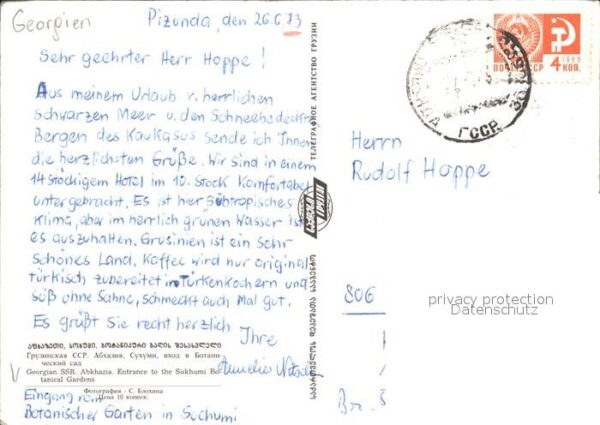 Georgien
Pizunda, den 26.6.73
Sehr geehrter Herr Hoppe!
Aus meinem Urlaub v. herrlichen
Schwarzen Meer u. den Schneebedeckt.
Bergen des Kaukasus sende ich Ihnen
die herzlichsten Grüße. Wir sind in einem
14 stöckigem Hotel im 10. Stock Komfortabel
untergebracht. Es ist hier subtropisches
Klima, aber im herrlich grünen Wasser ist
es auszuhalten. Grusinien ist ein sehr
schönes Land. Kaffee wird nur original
türkisch zubereitet in Türkenkochern und
süß ohne Sahne, schmeckt auch mal gut.
Es grüßt Sie recht herzlich
Ihre
Annelies
აფხაზეთი, სოხუმი, ბოტანიკური ბაღის შესასვლელი
Грузинская ССР. Абхазия, Сухуми, вход в Ботани-
ческий сад
Georgian SSR. Abkhazia. Entrance to the Sukhumi Bo-
tanical Gardens
Фотография - С. Блохина
Цена 10 копеек.
V
Eingang vom
Botanischer Garten in Suchumi
ТЕЛЕГРАФНОЕ АГЕНТСТВО ГРУЗИИ
საქართველოს დეპეშათა სააგენტო
ГССР
ПОЧТА СССР
1966
4 КОП.
Herrn
Rudolf Hoppe
806
privacy protection
Datenschutz